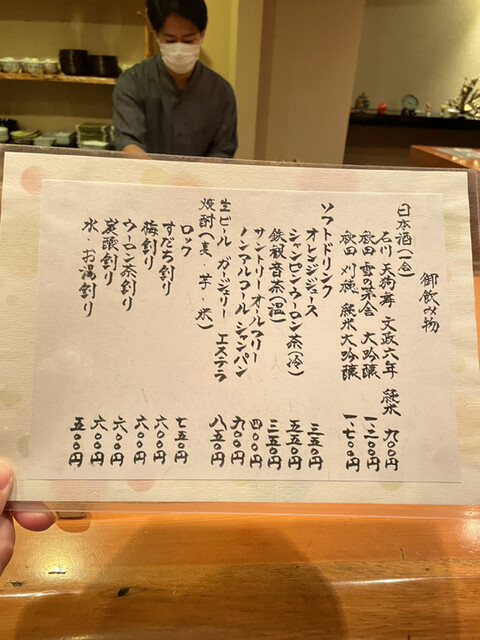 御飲み物
日本酒(冷)
石川 天狗舞 文政六年 純米 九〇〇円
秋田 雪の茅舎 大吟醸 一、二〇〇円
秋田 刈穂 純米大吟醸 一、七〇〇円
ソフトドリンク
オレンジジュース 三五〇円
ジャスミンウーロン茶(冷) 五五〇円
鉄観音茶(温) 三五〇円
サントリーオールフリー 四〇〇円
ノンアルコールシャンパン 九〇〇円
生ビール ガージェリー エステラ 八五〇円
焼酎(麦・芋・米)
ロック 七五〇円
すだち割り 六〇〇円
梅割り 六〇〇円
ウーロン茶割り 六〇〇円
炭酸割り 六〇〇円
水・お湯割り 五〇〇円